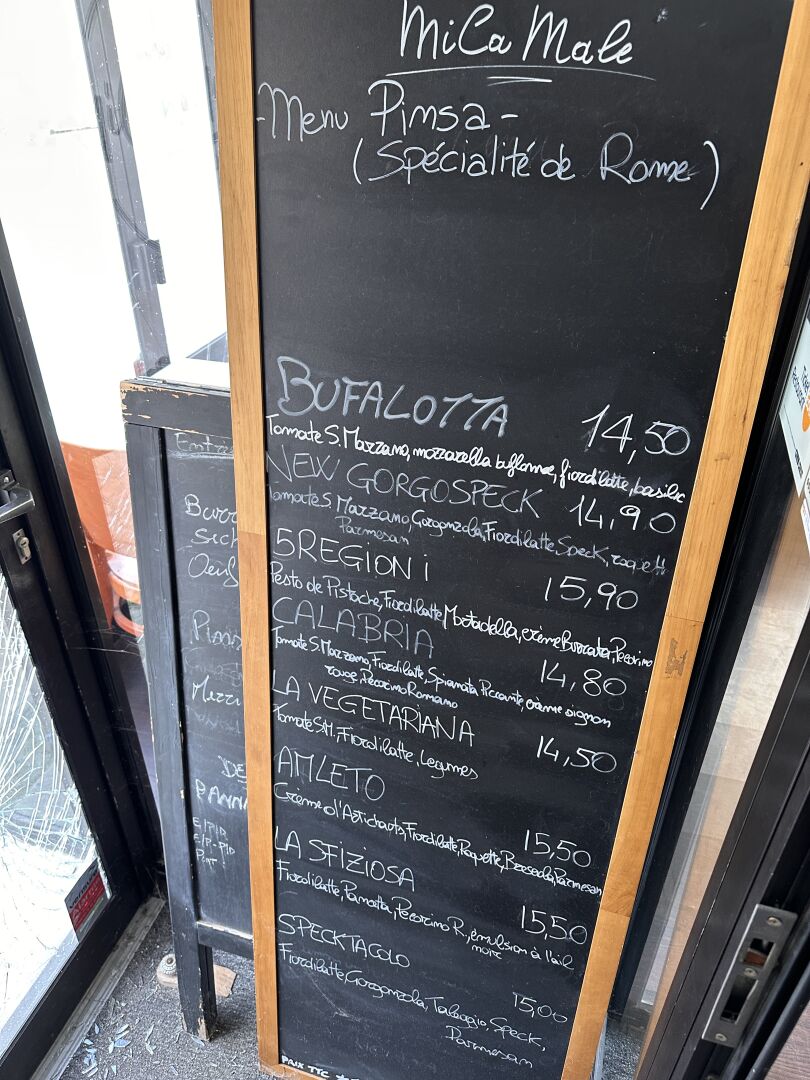 MiCa Male
-Menu Pimsa-
(Spécialité de Rome)
BUFALOTTA 14,50
Tomate S. Marzano, mozzarella bufflonne, fiordilatte, basilic
NEW GORGOSPECK 14,90
Tomate S. Marzano, Gorgonzola, Fiordilatte, Speck, roquette
Parmesan
5REGIONi 15,90
Pesto de Pistache, Fiordilatte Mortadella, crème Burrata, Pecorino
CALABRIA 14,80
Tomate S. Marzano, Fiordilatte, Spianata Piccante, crème oignon
rouge, Pecorino Romano
LA VEGETARIANA 14,50
Tomate S.M., Fiordilatte, Legumes
AMLETO 15,50
Crème d'Artichauts, Fiordilatte, Roquette, Bresaola, Parmesan
LA SFIZIOSA 15,50
Fiordilatte, Pecorino R., émulsion à l'ail
noir
SPECKTACOLO 15,00
Fiordilatte, Gorgonzola, Taleggio, Speck,
Parmesan
PRIX TTC
Entré
Oeuf
PANNA